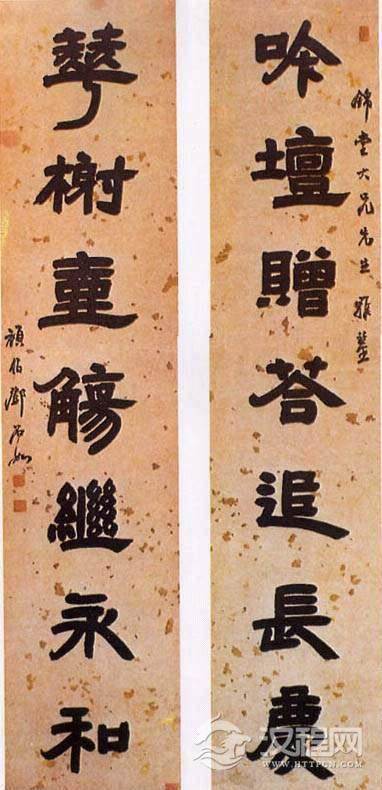 錦堂大兄先生雅鑒
吟壇贈荅追長慶
華榭壺觴繼永和
頑伯鄧石如
汉程网
HTTPCN.COM